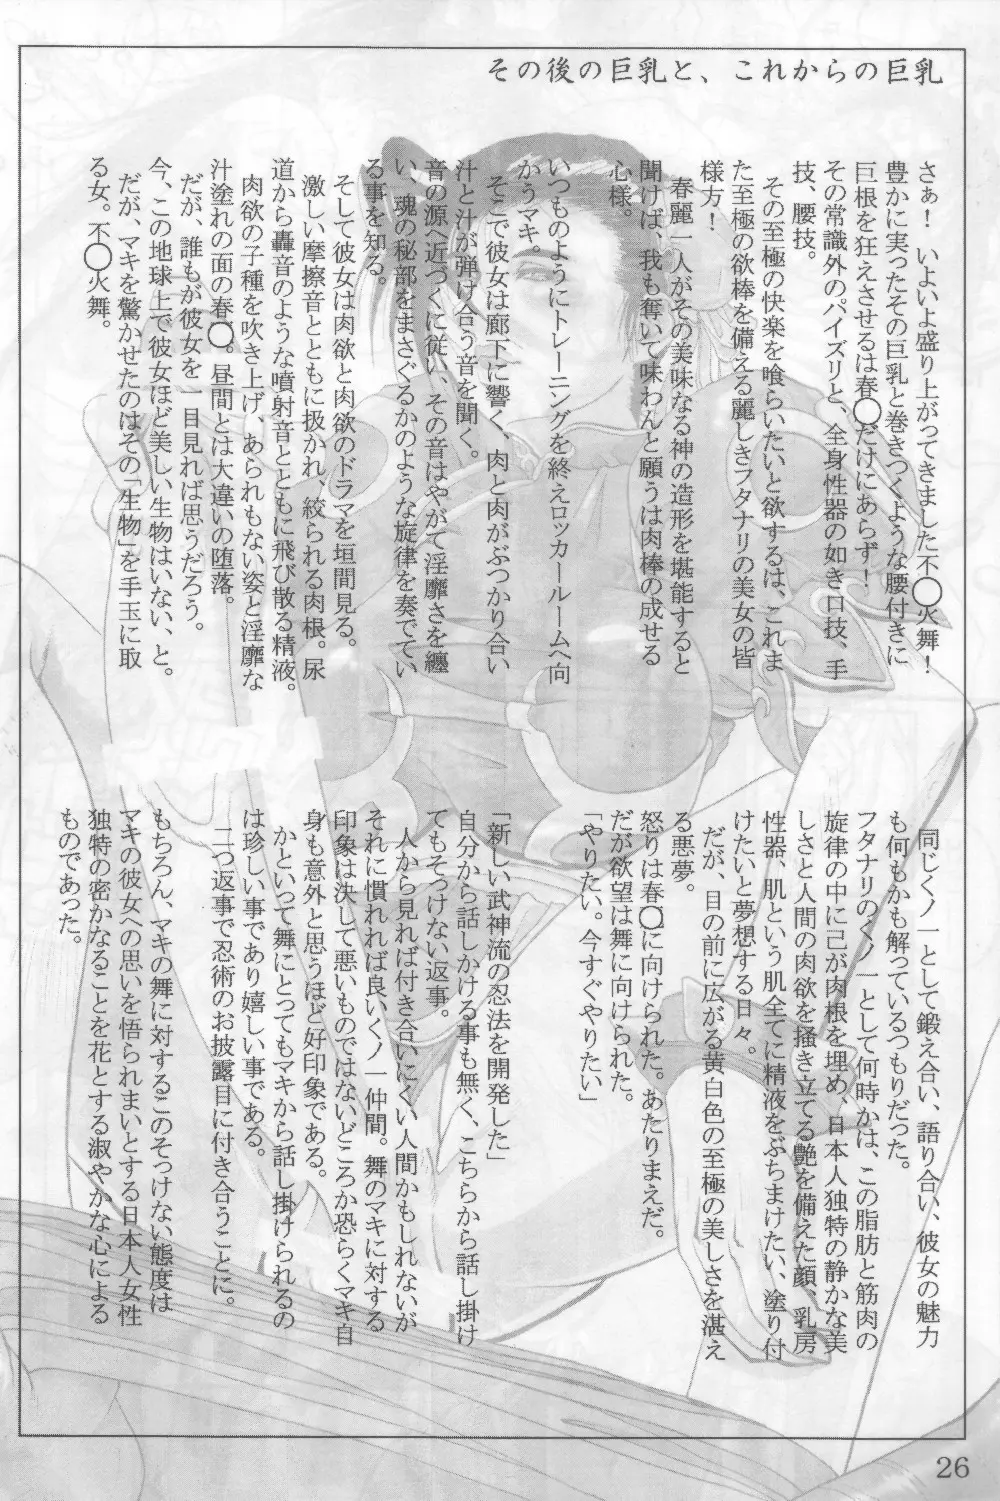 その後の巨乳と、これからの巨乳
さぁ！　いよいよ盛り上がってきました不◯火舞！
豊かに実ったその巨乳と巻きつくような腰付きに
巨根を狂えさせるは春◯だけにあらず！
その常識外のパイズリと、全身性器の如き口技、手
技、腰技。
その至極の快楽を喰らいたいと欲するは、これま
た至極の欲棒を備える麗しきフタナリの美女の皆
様方！
春麗一人がその美味なる神の造形を堪能すると
聞けば、我も奪いて味わんと願うは肉棒の成せる
心様。
いつものようにトレーニングを終えロッカールームへ向
かうマキ。
そこで彼女は廊下に響く、肉と肉がぶつかり合い
汁と汁が弾け合う音を聞く。
音の源へ近づくに従い、その音はやがて淫靡さを纏
い、魂の秘部をまさぐるかのような旋律を奏でてい
る事を知る。
そして彼女は肉欲と肉欲のドラマを垣間見る。
激しい摩擦音とともに扱かれ、絞られる肉根。尿
道から轟音のような噴射音とともに飛び散る精液。
肉欲の子種を吹き上げ、あられもない姿と淫靡な
汁塗れの面の春◯。昼間とは大違いの堕落。
だが、誰もが彼女を一目見れば思うだろう。
今、この地球上で彼女ほど美しい生物はいない、と。
だが、マキを驚かせたのはその「生物」を手玉に取
る女。不◯火舞。
同じくノ一として鍛え合い、語り合い、彼女の魅力
も何もかも解っているつもりだった。
フタナリのくノ一として何時かは、この脂肪と筋肉の
旋律の中に己が肉根を埋め、日本人独特の静かな美
しさと人間の肉欲を掻き立てる艶を備えた顔、乳房
性器、肌という肌全てに精液をぶちまけたい、塗り付
けたいと夢想する日々。
だが、目の前に広がる黄白色の至極の美しさを湛え
る悪夢。
怒りは春◯に向けられた。あたりまえだ。
だが欲望は舞に向けられた。
「やりたい。今すぐやりたい」
「新しい武神流の忍法を開発した」
自分から話しかける事も無く、こちらから話し掛け
てもそっけない返事。
人から見れば付き合いにくい人間かもしれないが
それに慣れれば良いくノ一仲間。舞のマキに対する
印象は決して悪いものではないどころか恐らくマキ自
身も意外と思うほど好印象である。
かといって舞にとってもマキから話し掛けられるの
は珍しい事であり嬉しい事である。
二つ返事で忍術のお披露目に付き合うことに。
もちろん、マキの舞に対するこのそっけない態度は
マキの彼女への思いを悟られまいとする日本人女性
独特の密かなることを花とする淑やかな心による
ものであった。
26